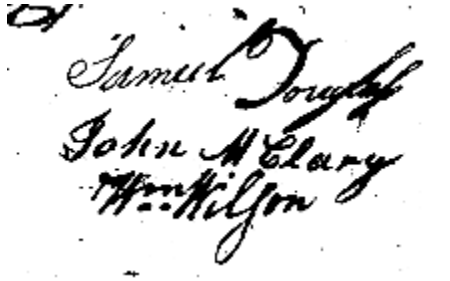 Samuel Douglass
John McClary
Wm Wilson